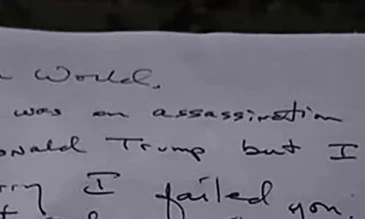 World.
was an assassination
onald Trump but I
rry I failed you.